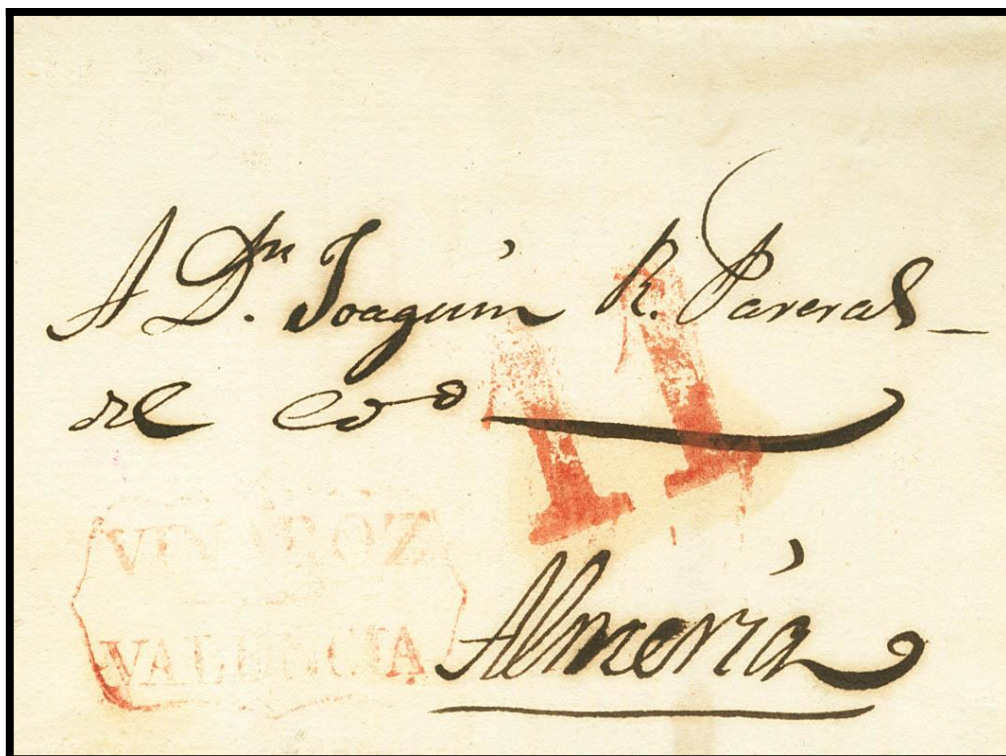 A Dn. Joaquin R. Pareras
del Coo
11
VINAROZ
VALENCIA
Almeria